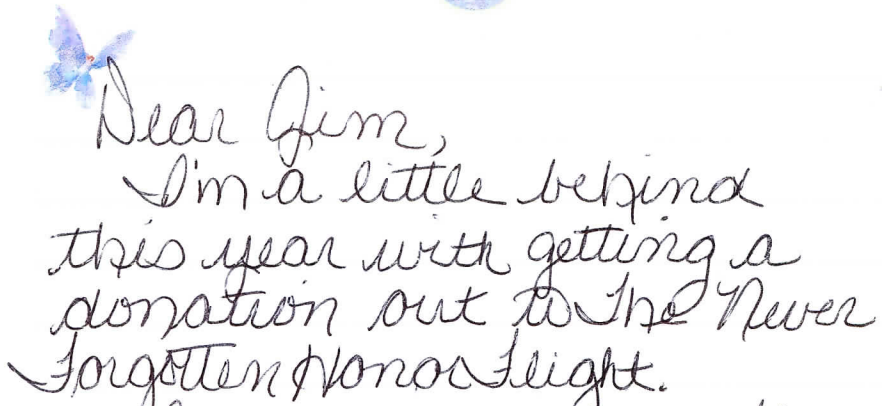 Dear Jim,
I'm a little behind
this year with getting a
donation out to The Never
Forgotten Honor Flight.